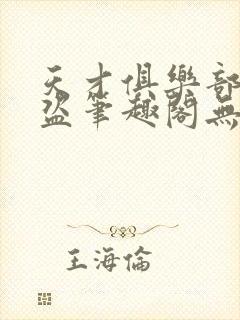 天才俱樂部
盜筆趣閣無
王海倫